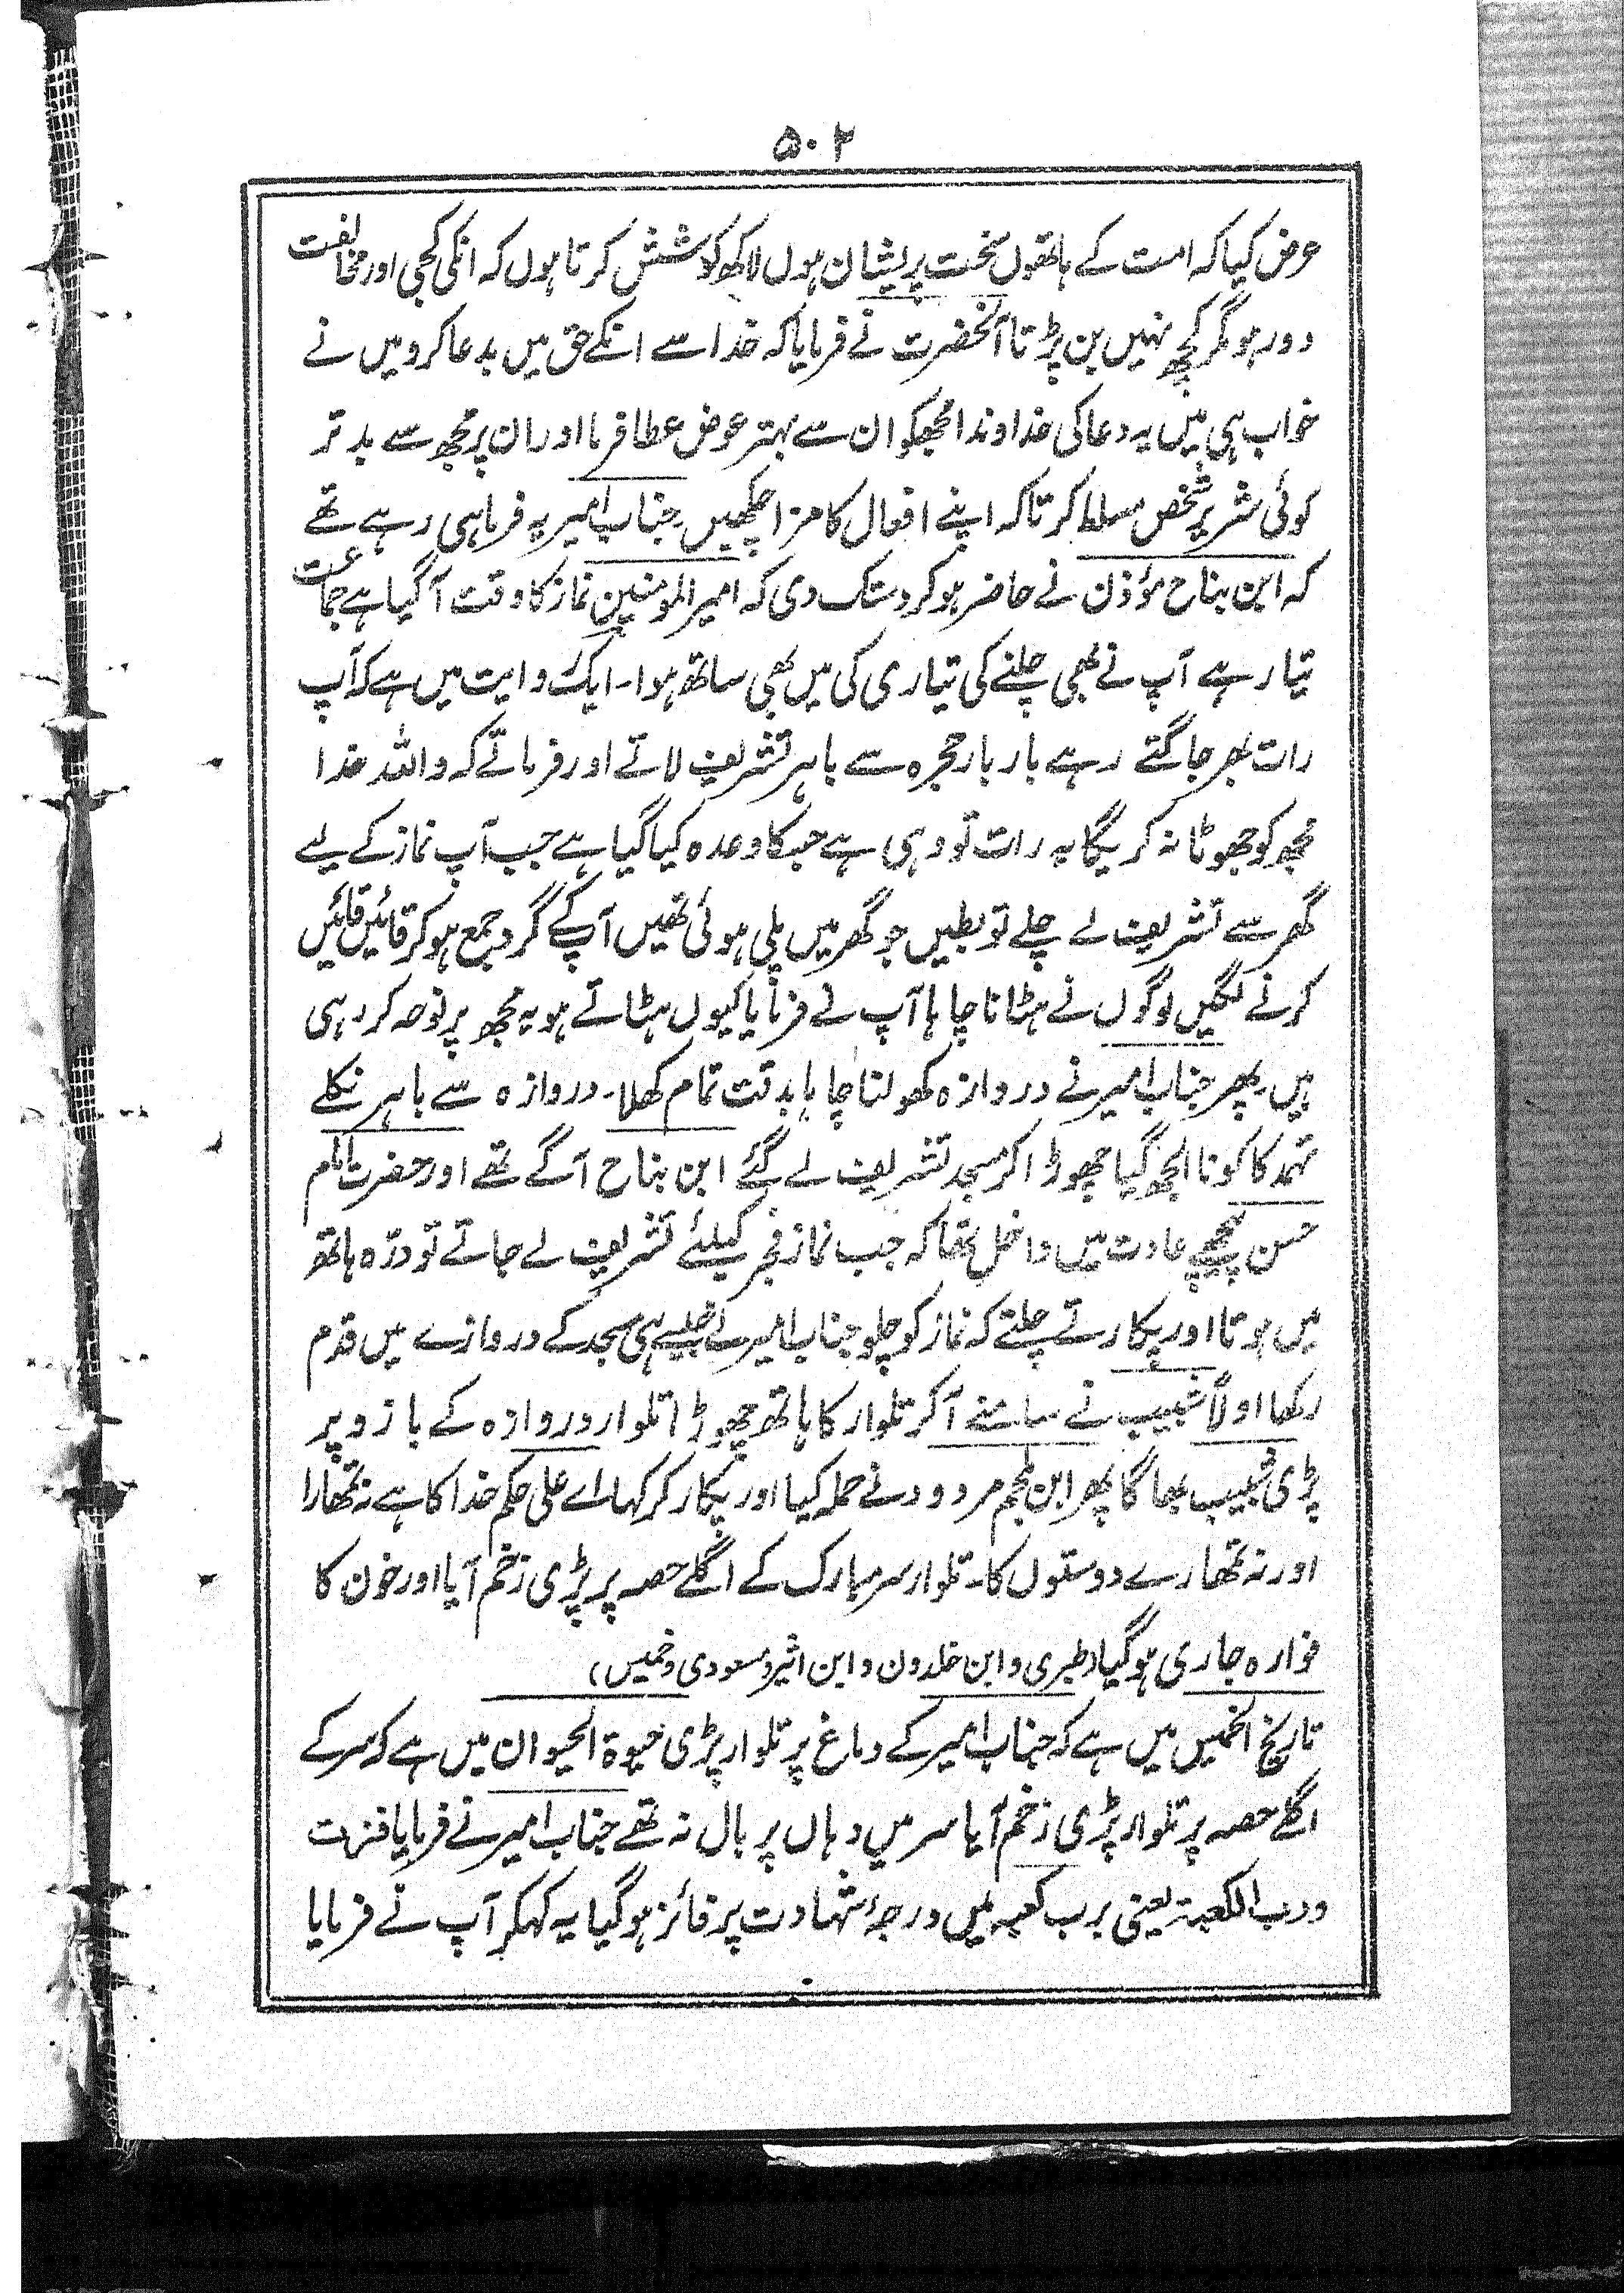 ۵۰۲
عرض کیا کہ امت کے ہاتھوں سخت پریشان ہوں لاکھ کوشش کرتا ہوں کہ انکی کجی اور مخالفت
دور ہو مگر کچھ نہیں بن پڑتا آنحضرت نے فرمایا کہ خدا سے انکے حق میں بد عا کرو میں نے
خواب ہی میں یہ دعا کی خداوندا مجھکو ان سے بہتر عوض عطا فرما اور ان پر مجھ سے بد تر
کوئی شریر شخص مسلط کر تا کہ اپنے افعال کا مزا چکھیں۔ جناب امیر یہ فرما ہی رہے تھے
کہ ابن بناح مؤذن نے حاضر ہو کر دستک دی کہ امیر المومنین نماز کا وقت آگیا ہے جماعت
تیار ہے آپ نے بھی چلنے کی تیاری کی میں بھی ساتھ ہوا۔ ایک روایت میں ہے کہ آپ
رات بھر جاگتے رہے بار بار حجرہ سے باہر تشریف لاتے اور فرماتے کہ واللہ خدا
مجھ کو جھوٹا نہ کریگا یہ رات تو وہی ہے جسکا وعدہ کیا گیا ہے جب آپ نماز کے لیے
گھر سے تشریف لے چلے تو بطیں جو گھر میں پلی ہوئی تھیں آپ کے گرد جمع ہو کر قائیں قائیں
کرنے لگیں لوگوں نے ہٹانا چاہا آپ نے فرمایا کیوں ہٹاتے ہو یہ مجھ پر نوحہ کر رہی
ہیں۔ پھر جناب امیر نے دروازہ کھولنا چاہا بدقت تمام کھلا۔ دروازہ سے باہر نکلے
تہمد کا کونا الجھ گیا چھوڑا کر مسجد تشریف لے گئے ابن بناح آگے تھے اور حضرت امام
حسن پیچھے عادت میں داخل تھا کہ جب نماز فجر کیلئے تشریف لے جاتے تو درّہ ہاتھ
میں ہوتا اور پکارتے چلتے کہ نماز کو چلو جناب امیر نے جیسے ہی مسجد کے دروازے میں قدم
رکھا اولاً شبیب نے سامنے آکر تلوار کا ہاتھ چھوڑا تلوار دروازہ کے بازو پر
پڑی شبیب بھاگا پھر ابن ملجم مردود نے حملہ کیا اور پکار کر کہا اے علی حکم خدا کا ہے نہ تمھارا
اور نہ تمھارے دوستوں کا۔ تلوار سر مبارک کے اگلے حصہ پر پڑی زخم آیا اور خون کا
فوارہ جاری ہو گیا (طبری و ابن خلدون و ابن اثیر و مسعودی و خمیس)
تاریخ الخمیس میں ہے کہ جناب امیر کے دماغ پر تلوار پڑی حیوۃ الحیوان میں ہے کہ سر کے
اگلے حصہ پر تلوار پڑی زخم آیا سر میں وہاں پر بال نہ تھے جناب امیر نے فرمایا فزت
ورب الکعبۃ یعنی برب کعبہ میں درجۂ شہادت پر فائز ہو گیا یہ کہکر آپ نے فرمایا